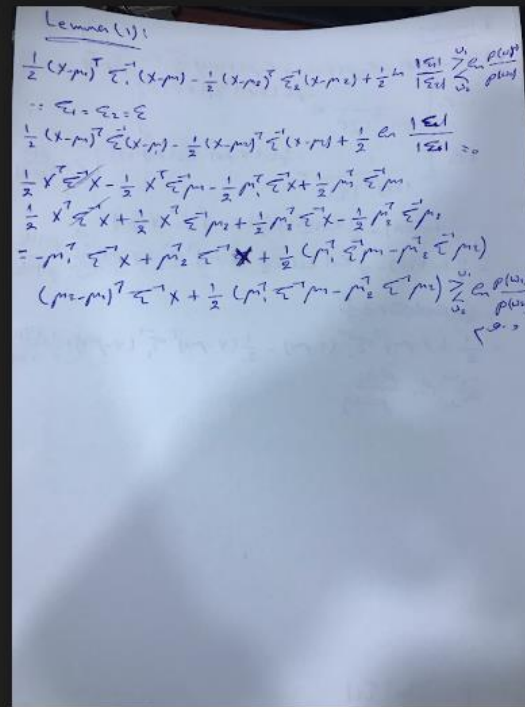 Lemma(1):
1/2 (x-μ₁)ᵀ Σ₁⁻¹ (x-μ₁) - 1/2 (x-μ₂)ᵀ Σ₂⁻¹ (x-μ₂) + 1/2 ln |Σ₁|/|Σ₂| ≷ ω₁ ω₂ ln P(ω₁)/P(ω₂)
∵ Σ₁ = Σ₂ = Σ
1/2 (x-μ₁)ᵀ Σ⁻¹ (x-μ₁) - 1/2 (x-μ₂)ᵀ Σ⁻¹ (x-μ₂) + 1/2 ln |Σ₁|/|Σ₂| = 0
1/2 xᵀ Σ⁻¹ x - 1/2 xᵀ Σ⁻¹ μ₁ - 1/2 μ₁ᵀ Σ⁻¹ x + 1/2 μ₁ᵀ Σ⁻¹ μ₁
1/2 xᵀ Σ⁻¹ x + 1/2 xᵀ Σ⁻¹ μ₂ + 1/2 μ₂ᵀ Σ⁻¹ x - 1/2 μ₂ᵀ Σ⁻¹ μ₂
= -μ₁ᵀ Σ⁻¹ x + μ₂ᵀ Σ⁻¹ x + 1/2 (μ₁ᵀ Σ⁻¹ μ₁ - μ₂ᵀ Σ⁻¹ μ₂)
(μ₂-μ₁)ᵀ Σ⁻¹ x + 1/2 (μ₁ᵀ Σ⁻¹ μ₁ - μ₂ᵀ Σ⁻¹ μ₂) ≷ ω₁ ω₂ ln P(ω₁)/P(ω₂)